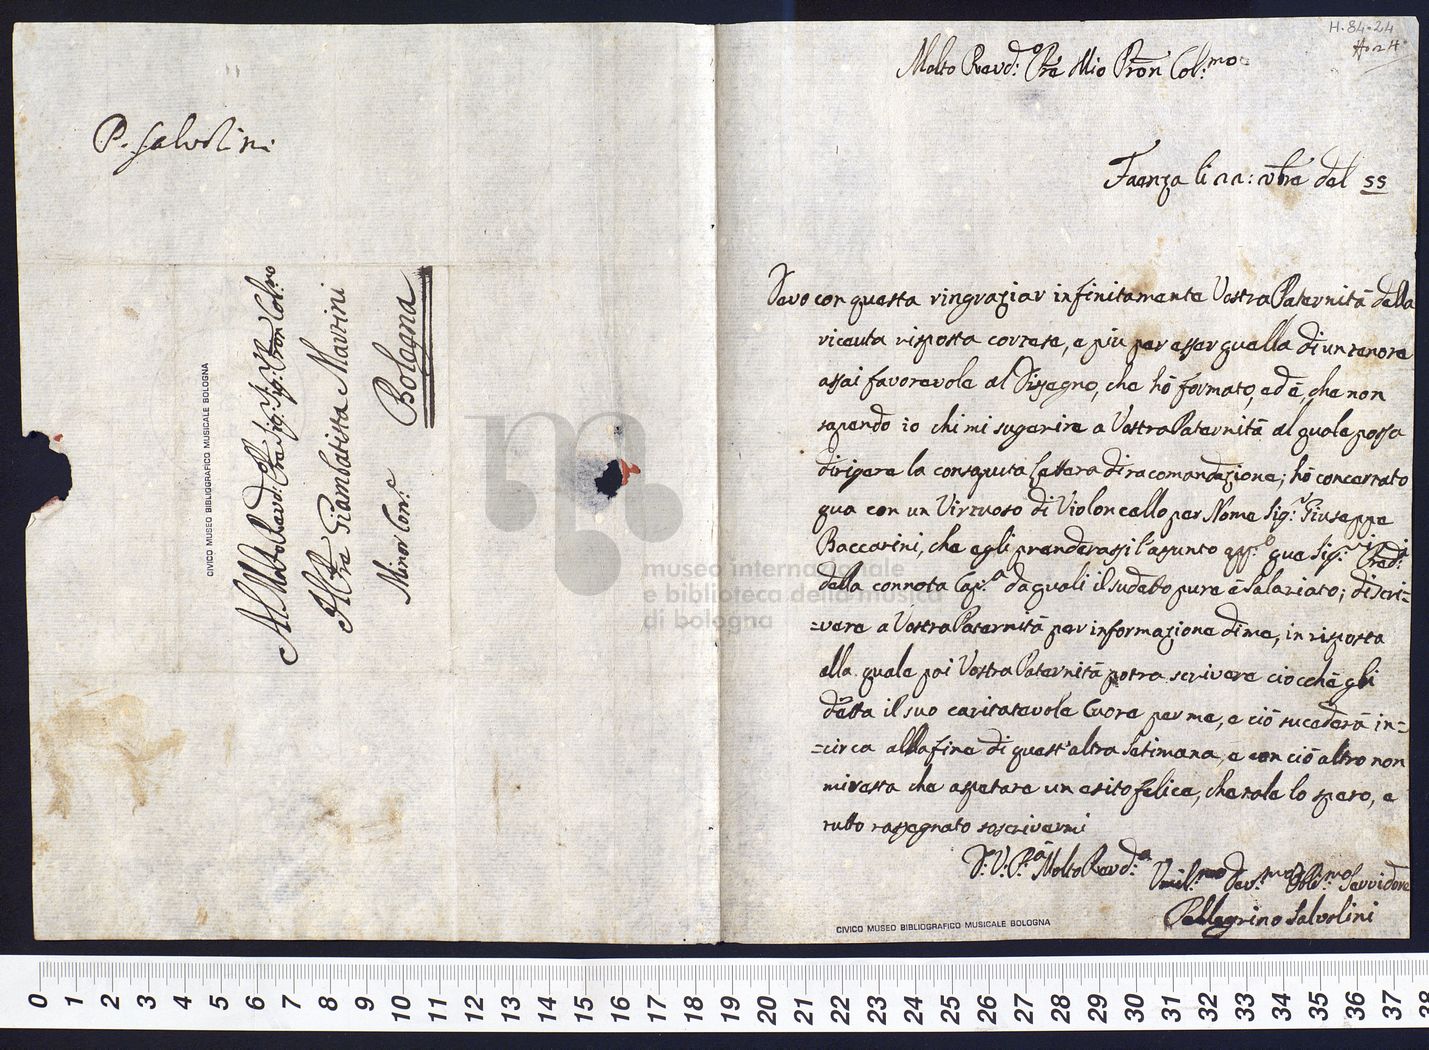 P. Salvolini
Al Molto Revd: Pre Sig: Sig: Pron Col:mo
Il Pre Giambatista Martini
Minor Con:e
Bologna
CIVICO MUSEO BIBLIOGRAFICO MUSICALE BOLOGNA
H.84.24
Molto Revd:o Pre Mio Pron Col:mo
Faenza li 11: vbre del 55
Devo con questa ringraziar infinitamente Vostra Paternità della
riceuta risposta cortese, e più per esser quella di un tenore
assai favorevole al Dissegno, che hò formato, ed è, che non
sapendo io chi mi sugerire a Vostra Paternità al quale possa
dirigere la consaputa Lettera di racomandazione; hò concertato
qua con un Virtuoso di Violoncello per Nome Sig:r Giuseppe
Baccarini, che egli prenderassi l'assunto que Sig:ri
della connota Cap:a da quali il sudetto pure è Salariato; di scri=
=vere a Vostra Paternità per informazione di me, in risposta
alla quale poi Vostra Paternità potra scrivere ciocchè gli
detta il suo caritatevole Cuore per me, e ciò sucederà in=
=circa alla fine di quest'altra Setimana, e con ciò altro non
mi resta che aspetare un esito felice, che tale lo spero, e
tutto rassegnato soscrivermi
D: V: P:a Molto Revd:a
Umil:mo Dev:mo Obb:mo Servidore
Pellegrino Salvolini
CIVICO MUSEO BIBLIOGRAFICO MUSICALE BOLOGNA
museo internazionale
e biblioteca della musica
di bologna
0 1 2 3 4 5 6 7 8 9 10 11 12 13 14 15 16 17 18 19 20 21 22 23 24 25 26 27 28 29 30 31 32 33 34 35 36 37 38